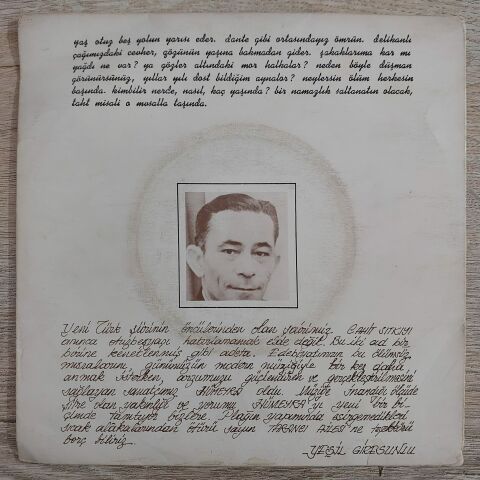 yaş otuz beş yolun yarısı eder. dante gibi ortasındayız ömrün. delikanlı
çağımızdaki cevher, gözünün yaşına bakmadan gider. şakaklarıma kar mı
yağdı ne var? ya gözler altındaki mor halkalar? neden böyle düşman
görünürsünüz, yıllar yılı dost bildiğim aynalar? neylersin ölüm herkesin
başında. kimbilir nerde, nasıl, kaç yaşında? bir namazlık saltanatın olacak,
taht misali o musalla taşında.
Yeni Türk şiirinin öncülerinden olan şairimiz CAHİT SITKI'yı
anınca otuzbeşyaşı hatırlamamak elde değil. Bu iki ad bir
birine kenetlenmiş gibi adeta. Edebiyatımızın bu ölümsüz
mısralarını, günümüzün modern müziğiyle bir kez daha
anmak isterken, arzumuzu güçlendiren ve gerçekleştirilmesini
sağlayan sanatçımız HÜMEYRA oldu. Müziğe inandığı ölçüde
şiire olan yakınlığı ve yorumu HÜMEYRA'yı yeni bir bi-
çimde tanıtıyor bizlere. Plağın yapımında esirgemedikleri
sıcak alakalarından ötürü sayın TARANCI AİLESİ'ne teşekkürü
borç biliriz.
YEŞİL GİRESUNLU